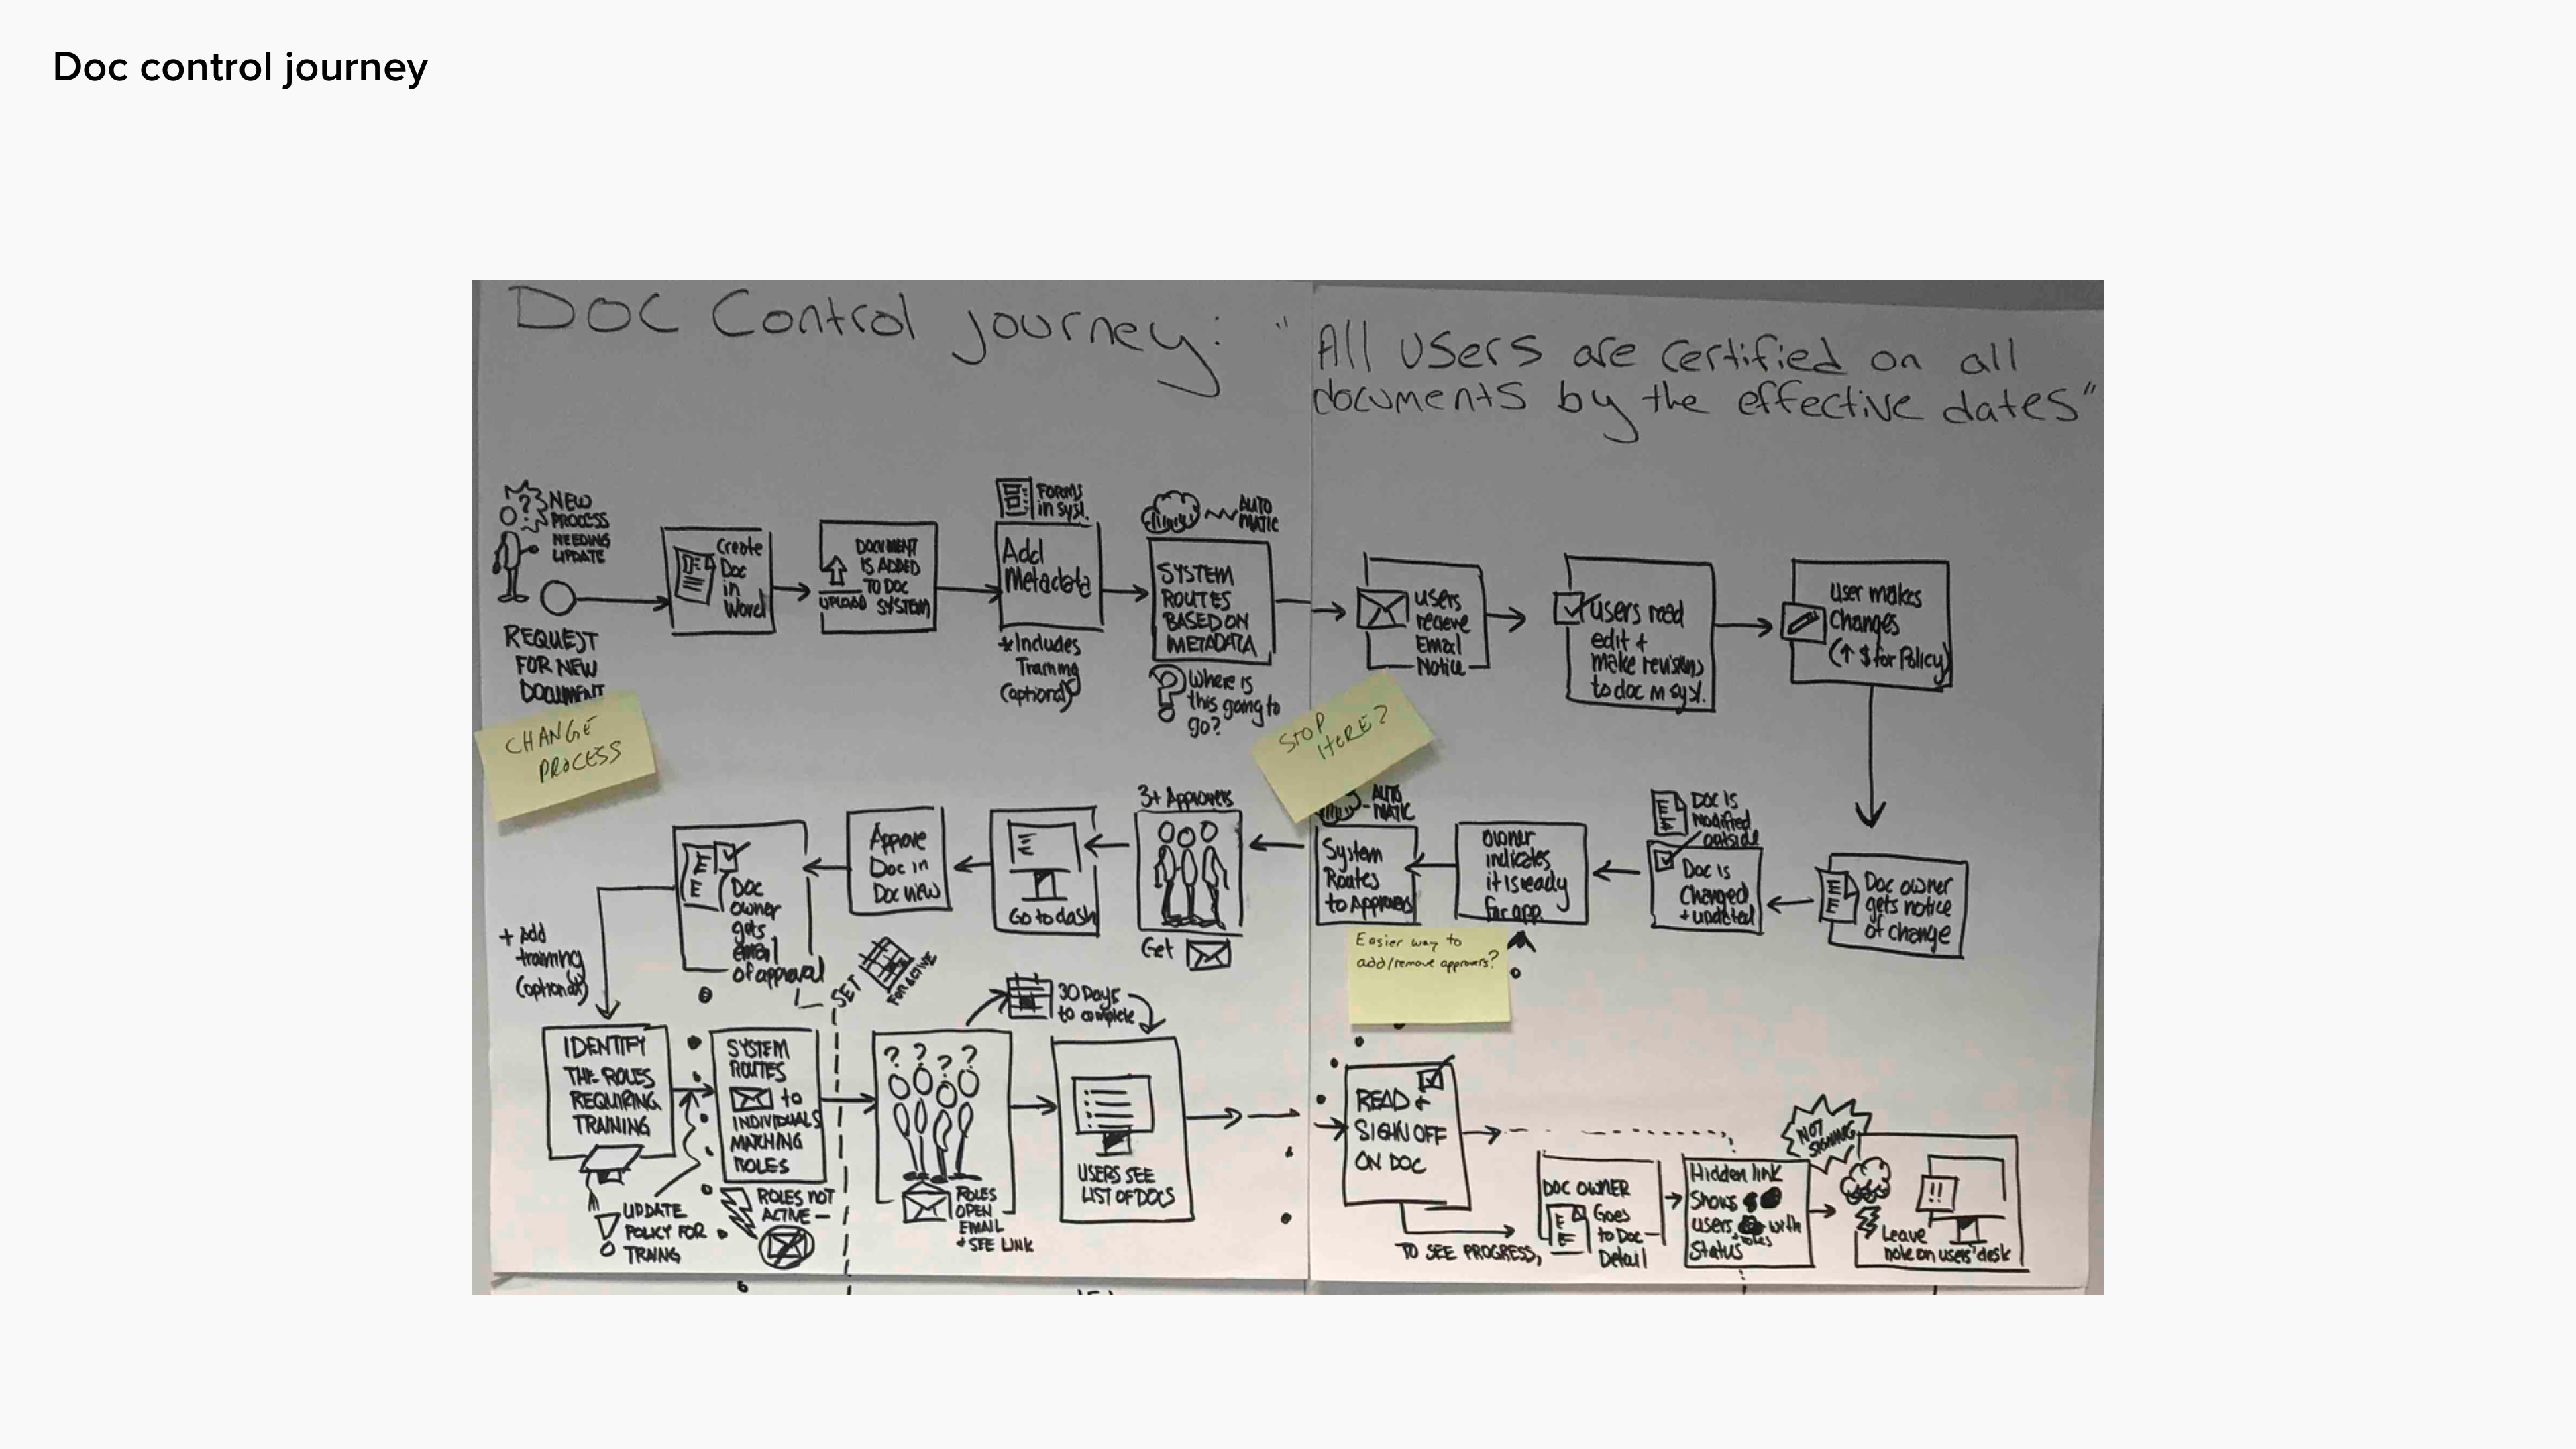 Doc control journey
DOC Control journey: "All users are certified on all
documents by the effective dates"
NEW
PROCESS
NEEDING
UPDATE
REQUEST
FOR NEW
DOCUMENT
Create
Doc
in
Word
DOCUMENT
IS ADDED
TO DOC
UPLOAD SYSTEM
FORMS
in syst.
Add
Metadata
*Includes
Training
(optional)
AUTO
MATIC
SYSTEM
ROUTES
BASED ON
METADATA
? Where is
this going to
go?
users
recieve
Email
Notice
Users read
edit +
make revisions
to doc in syst.
User makes
Changes
(↑ $ for Policy)
CHANGE
PROCESS
STOP
HERE?
Doc owner
gets notice
of change
DOC IS
Modified
outside
Doc is
Changed
+ updated
owner
indicates
it is ready
for app.
AUTO
MATIC
System
Routes
to Approvers
Easier way to
add/remove approvers?
3+ Approvers
Get
Go to dash
Approve
Doc in
Doc view
Doc
owner
gets
email
of approval
SET
FOR ACTIVE
+ Add
training
(optional)
IDENTIFY
THE ROLES
REQUIRING
TRAINING
UPDATE
POLICY FOR
TRAING
SYSTEM
ROUTES
to
INDIVIDUALS
MATCHING
ROLES
ROLES NOT
ACTIVE —
? ? ? ?
ROLES
OPEN
EMAIL
+ SEE LINK
30 Days
to complete
USERS SEE
LIST OF DOCS
READ +
SIGN OFF
ON DOC
TO SEE PROGRESS,
DOC OWNER
Goes
to Doc
Detail
Hidden link
Shows
users with
roles
Status
NOT
SIGNING
!!
Leave
note on users' desk